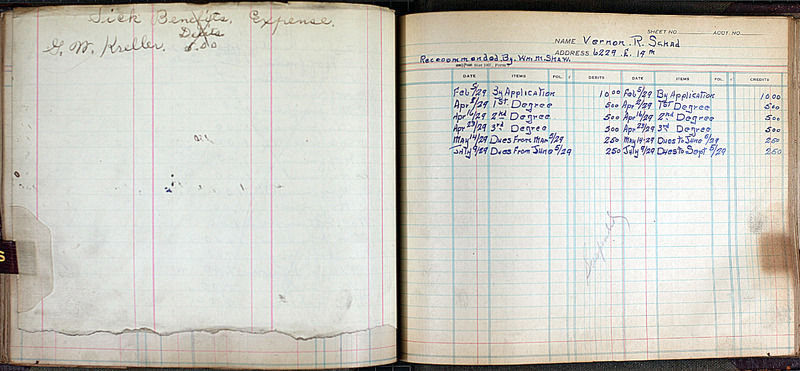 Sick Benefits, Expense.
Debits
G. W. Kreller. 5.00
SHEET NO. ACCT. NO.
NAME Vernon R. Schad
ADDRESS 6229 E. 19th
Reccommended By. Wm. M. Shaw.
DATE ITEMS FOL. DEBITS DATE ITEMS FOL. CREDITS
Feb 5/29 By Application 10 00 Feb 5/29 By Application 10 00
Apr 2/29 1st Degree 5 00 Apr 2/29 1st Degree 5 00
Apr 16/29 2nd Degree 5 00 Apr 16/29 2nd Degree 5 00
Apr 23/29 3rd Degree 5 00 Apr 23/29 3rd Degree 5 00
May 14/29 Dues From Mar 5/29 2 50 May 14-29 Dues to June 5/29 2 50
July 9/29 Dues From June 5/29 2 50 July 9/29 Dues to Sept 5/29 2 50
Suspended
S